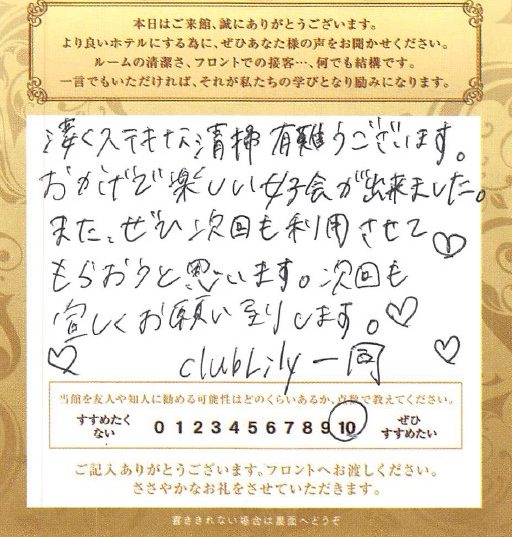 本日はご来館、誠にありがとうございます。
より良いホテルにする為に、ぜひあなた様の声をお聞かせください。
ルームの清潔さ、フロントでの接客…、何でも結構です。
一言でもいただければ、それが私たちの学びとなり励みになります。
凄くステキな清掃有難うございます。
おかげで楽しい女子会が出来ました。
また、ぜひ次回も利用させて
もらおうと思います。次回も
宜しくお願い至りします。
clubLily一同
当館を友人や知人に勧める可能性はどのくらいあるか、点数で教えてください。
すすめたくない 0 1 2 3 4 5 6 7 8 9 10 ぜひすすめたい
ご記入ありがとうございます。フロントへお渡しください。
ささやかなお礼をさせていただきます。
書ききれない場合は裏面へどうぞ